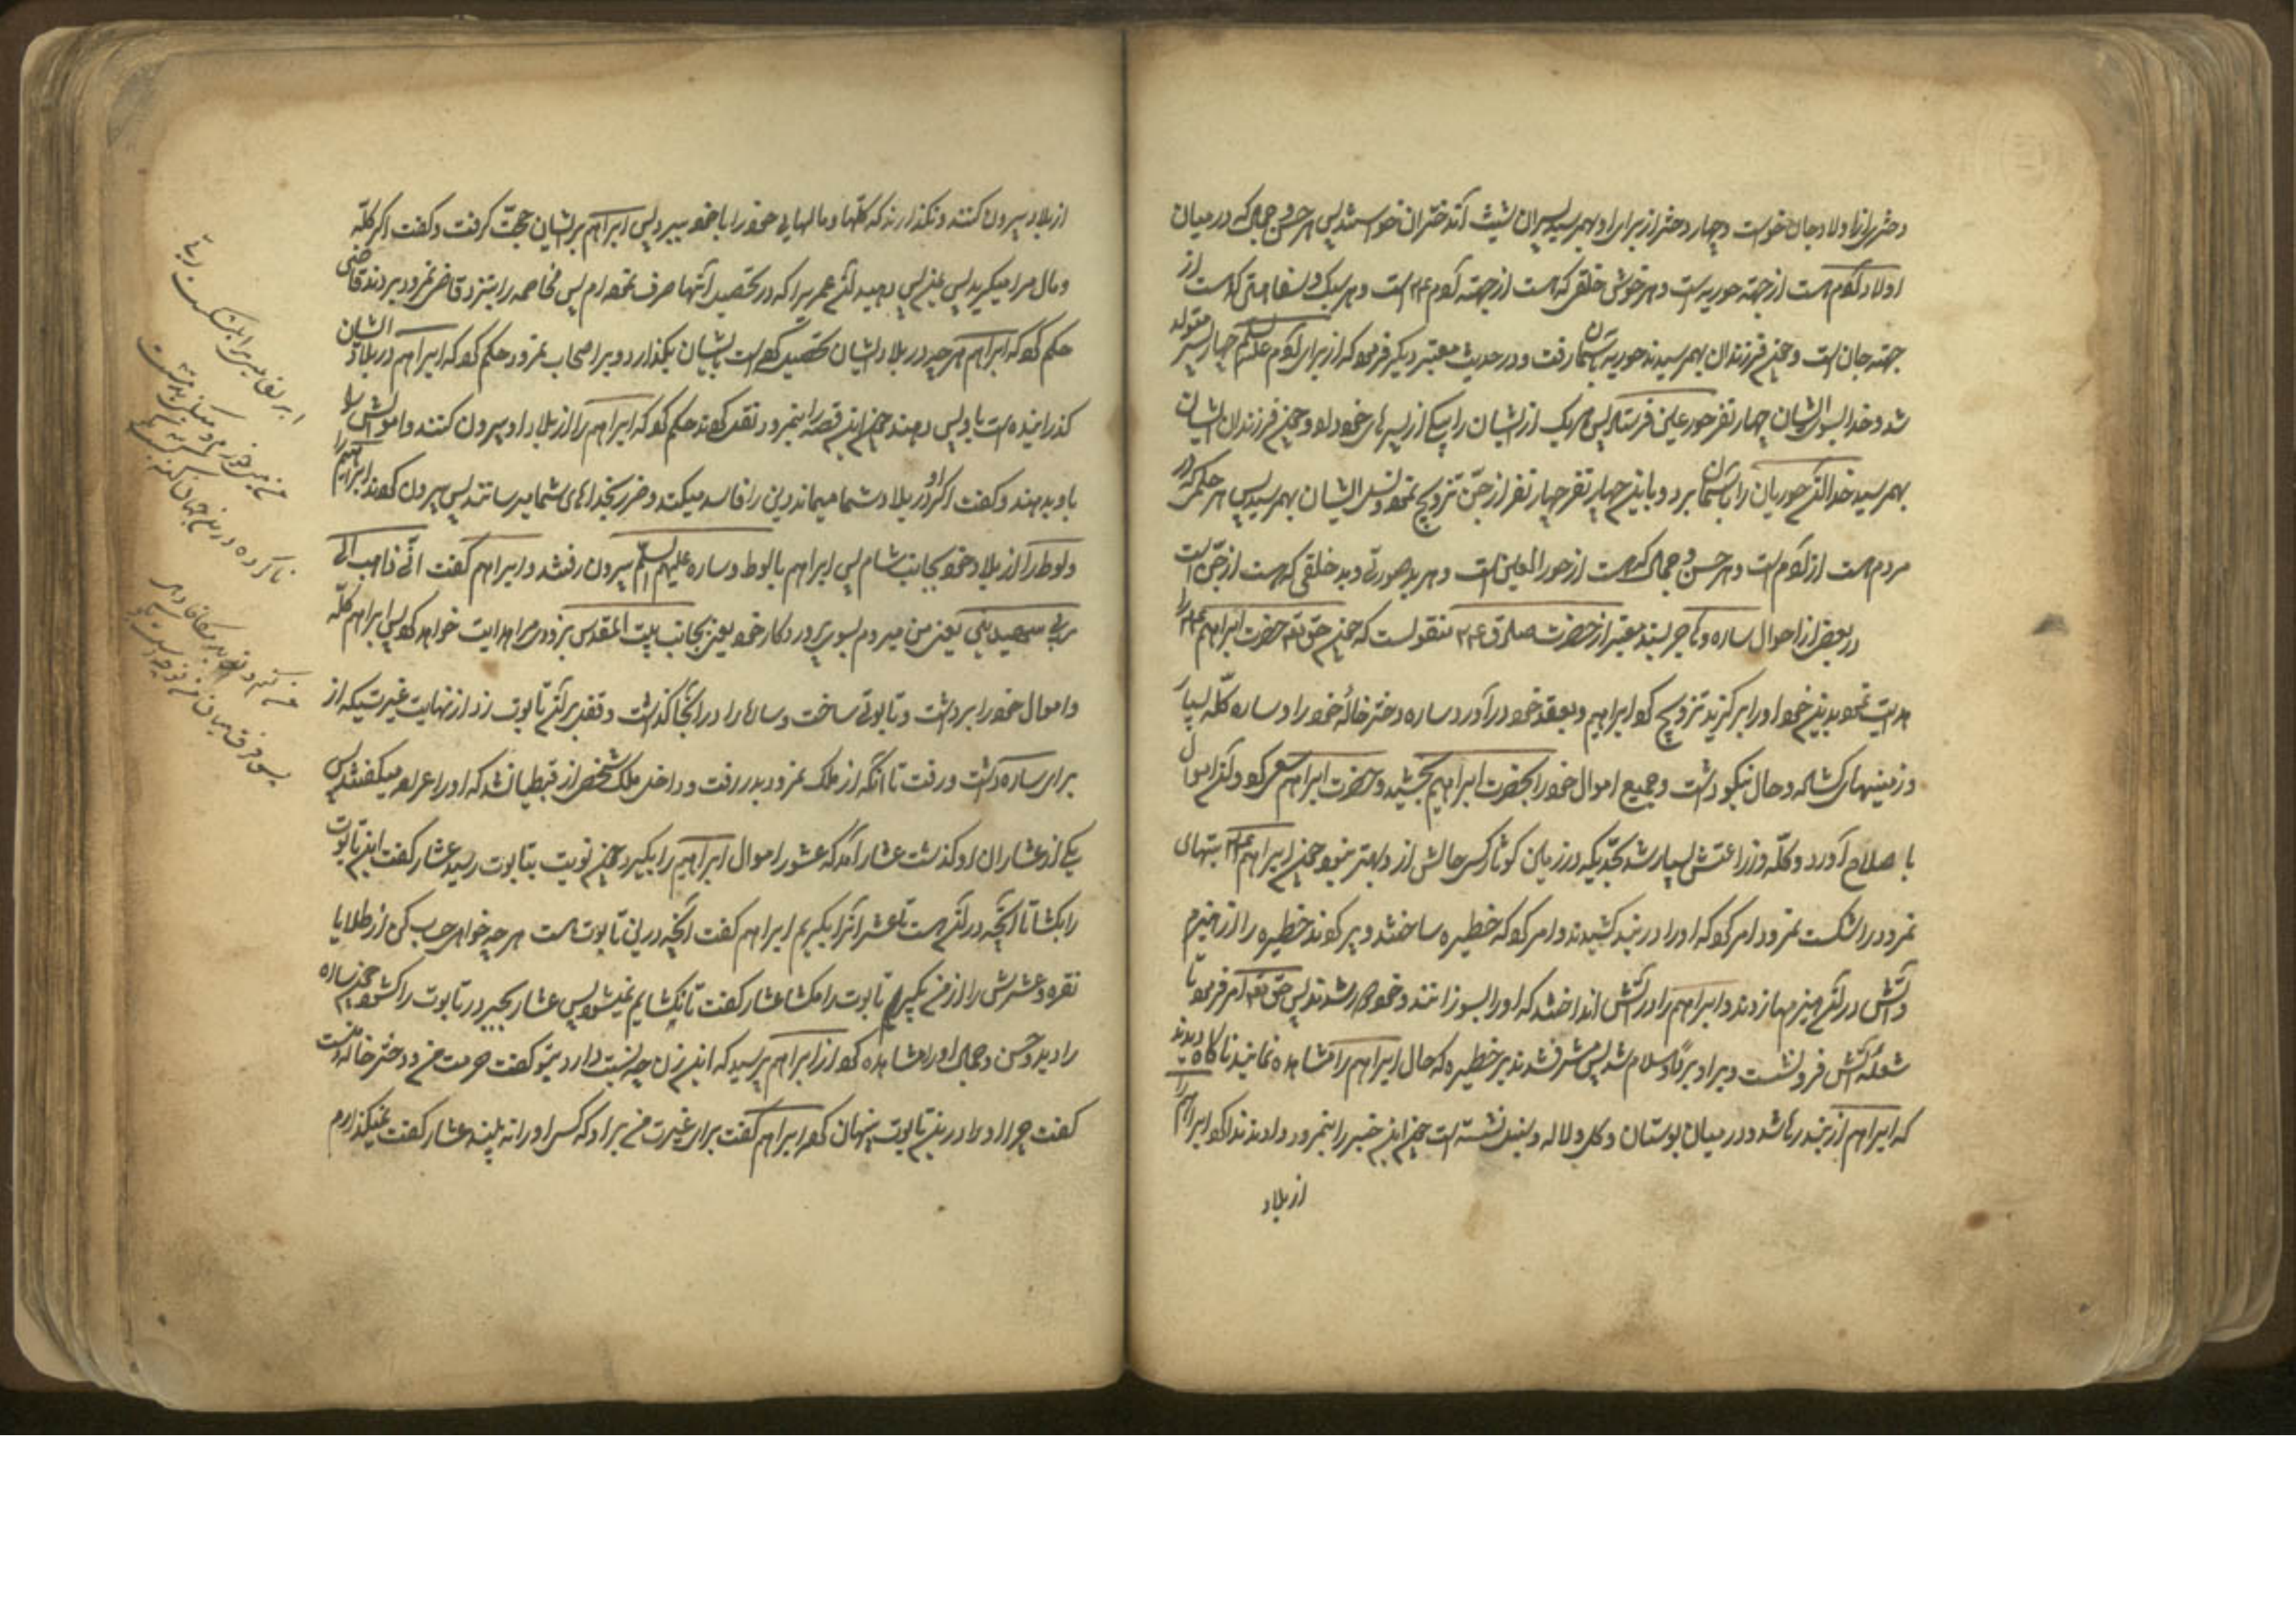 دختری از اولاد جان خواست و چهار دختر از برای او بهمرسید پسران شیث آن دختران خواستند پس هر حسن و جمال که در میان
اولاد آدم است از جهة حوریه است و هر خوش خلقی که هست از جهة آدم ع است و هر سبکی و سفاهتی که هست از
جهة جان است و چون فرزندان بهمرسیدند حوریه بآسمان رفت و در حدیث معتبر دیگر فرمود که از برای آدم علیه السلم چهار پسر متولد
شد و خدا بسوی ایشان چهار نفر حور عین فرستاد پس هر یک از ایشان را بیکی از پسرهای خود داد و چون فرزندان ایشان
بهمرسید خدا آن حوریان را بآسمان برد و باین چهار نفر چهار نفر از جن تزویج نمود و نسل ایشان بهمرسید پس هر حلم که در
مردم هست از آدم است و هر حسن و جمال که هست از حور العین است و هر بدصورتی و بد خلقی که هست از جن است
در بعض از احوال ساره و هاجر بسند معتبر از حضرت صادق ع منقولست که چون حق تع حضرت ابراهیم ع را
هدایت نمود بدین خود او را برگزید تزویج کرد ابراهیم و بعقد خود درآورد ساره دختر خاله خود را و ساره گله بسیار
و زمینهای گشاده و حال نیکو داشت و جمیع اموال خود را بحضرت ابراهیم بخشید و حضرت ابراهیم سعی کرد و آن اموال
با صلاح آورد و گله و زراعتش بسیار شد بحدیکه در زمین کوثا کسی حالش از او بهتر نبود و چون ابراهیم ع بتهای
نمرود را شکست نمرود امر کرد که او را در بند کشیدند و امر کرد که خطیره ساختند و پر کردند خطیره را از هیزم
و آتش در آن هیزمها زدند و ابراهیم را در آتش انداختند که او را بسوزانند و خود دور شدند پس حق تع امر فرمود تا
شعله آتش فرو نشست و بر او برد و سلام شد پس مشرف شدند بر خطیره که حال ابراهیم را مشاهده نمایند ناگاه دیدند
که ابراهیم از بند رها شد و در میان بوستان و گل و لاله و سنبل نشسته است چون این خبر را بنمرود دادند ندا کرد ابراهیم را
از بلاد
از بلاد بیرون کنند و نگذارند که گلها و مالهای خود را با خود ببرد پس ابراهیم بر ایشان حجت گرفت و گفت اگر گله
و مال مرا میگیرید پس بمن پس دهید آن عمر مرا که در تحصیل آنها صرف نموده‌ام پس مخاصمه را بنزد قاضی نمرود بردند قاضی
حکم کرد که ابراهیم هر چه در بلاد ایشان تحصیل کرده است بایشان بگذارد و بر اصحاب نمرود حکم کرد که ابراهیم در بلاد ایشان
گذرانیده است باو پس دهند چون این قصه را بنمرود نقل کردند حکم کرد که ابراهیم را از بلاد او بیرون کنند و اموالش را
باو بدهند و گفت اگر او در بلاد شما میماند دین را فاسد میکند و ضرر بخداهای شما میرساند پس بیرون کردند ابراهیم را
و لوط را از بلاد خود بجانب شام پس ابراهیم با لوط و ساره علیهم السلم بیرون رفتند و ابراهیم گفت انی ذاهب الی
ربی سیهدینی یعنی من میروم بسوی پروردگار خود یعنی بجانب بیت المقدس بزودی مرا هدایت خواهد کرد پس ابراهیم گله
و اموال خود را برداشت و تابوتی ساخت و ساره را در آنجا گذاشت و قفل بر آن تابوت زد از نهایت غیرتیکه از
برای ساره داشت و رفت تا آنگه از ملک نمرود بدر رفت و داخل ملک شخصی از قبطیان شد که او را عراره میگفتند پس
بیکی از عشاران او گذشت عشار آمد که عشور اموال ابراهیم را بگیرد چون نوبت بتابوت رسید عشار گفت این تابوت
را بگشا تا آنچه در آن هست تا عشر آنرا بگیریم ابراهیم گفت آنچه در این تابوت است هر چه خواهی حساب کن از طلا یا
نقره و عشرش را از من بگیر و تابوت را مگشا عشار گفت تا نگشایم نمیشود پس عشار بجبر در تابوت را گشود چون ساره
را دید و حسن و جمال او را مشاهده کرد از ابراهیم پرسید که این زن چه نسبت دارد بتو گفت حرمت من و دختر خاله منست
گفت چرا او را در این تابوت پنهان کرده ابراهیم گفت برای غیرت من بر او که کسی او را نه بیند عشار گفت نمیگذارم